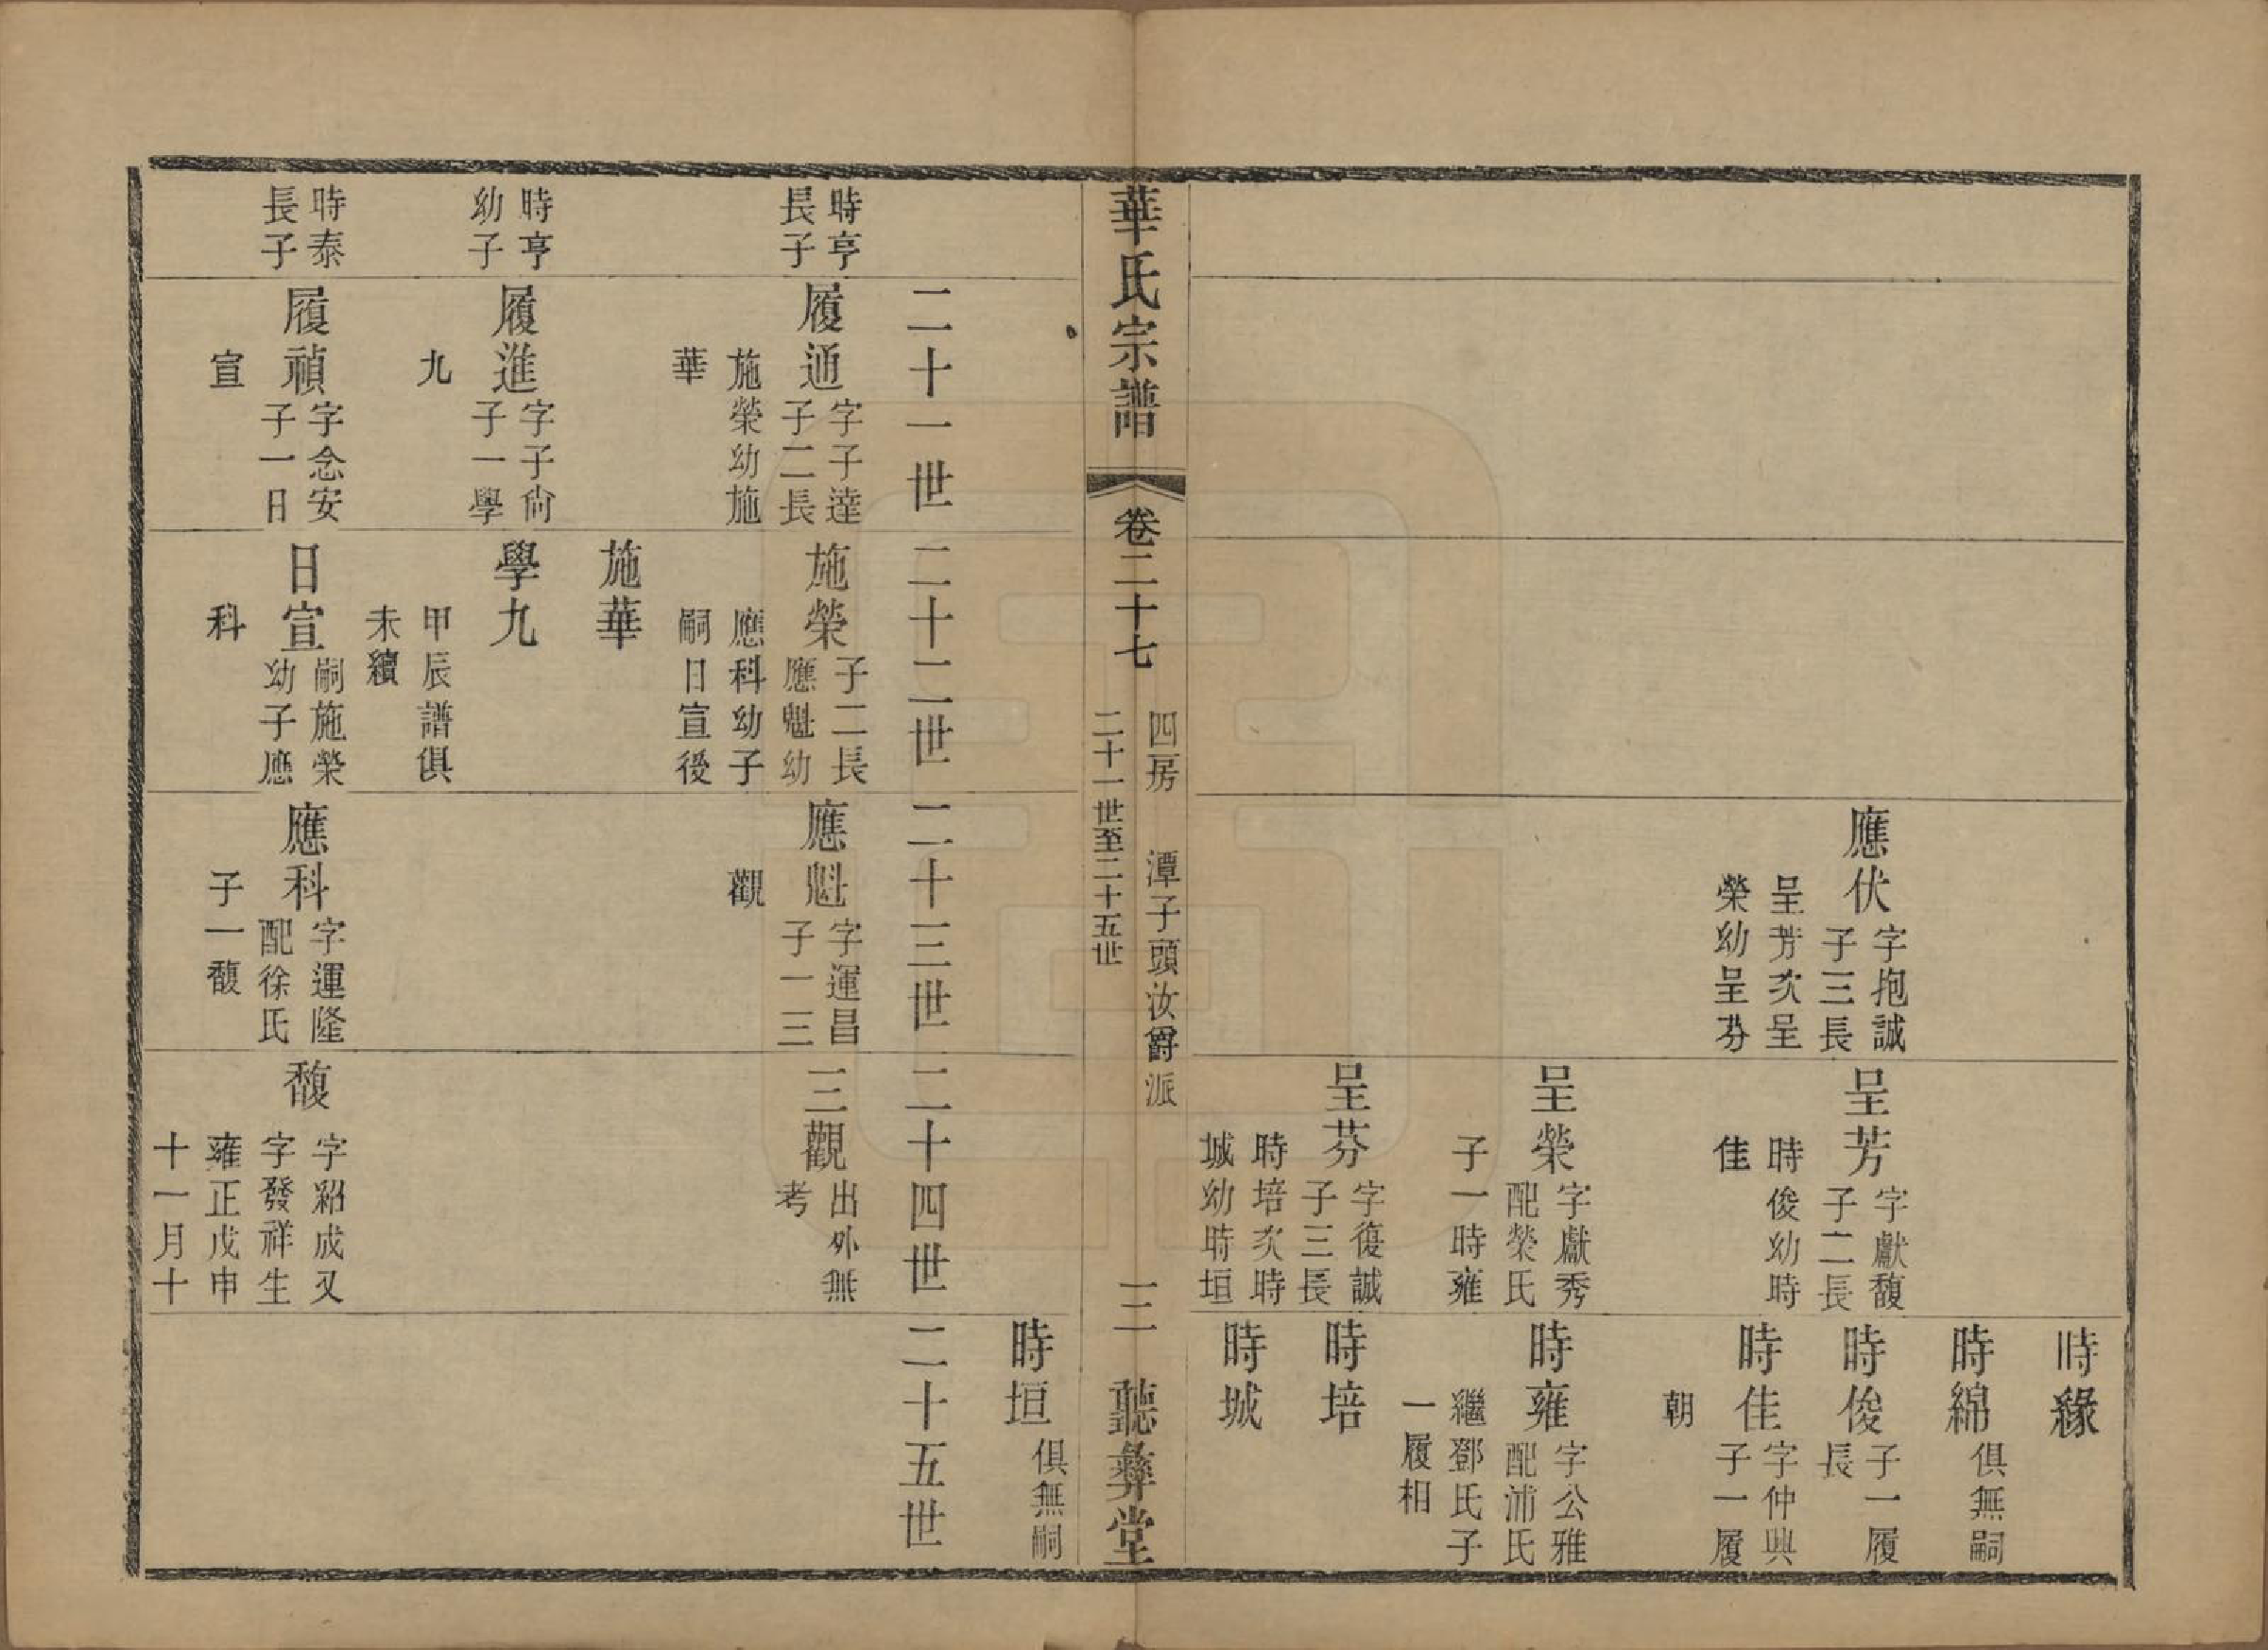 應伏
字抱誠
子三長
呈芳次呈
榮幼呈芬
呈芳
字獻馥
子二長
時俊幼時
佳
呈榮
字獻秀
配榮氏
子一時雍
呈芬
字復誠
子三長
時培次時
城幼時垣
時緣
時綿
俱無嗣
時俊
子一履
長
時佳
字仲興
子一履
朝
時雍
字公雅
配浦氏
繼鄧氏子
一履相
時培
時城
華氏宗譜
卷二十七
四房　潭子頭汝爵派
二十一世至二十五世
三
聽彝堂
時垣
俱無嗣
二十一世
二十二世
二十三世
二十四世
二十五世
時亨
長子
履通
字子達
子二長
施榮幼施
華
時亨
幼子
履進
字子尚
子一學
九
時泰
長子
履禎
字念安
子一日
宣
施榮
子二長
應魁幼
應科幼子
嗣日宣後
施華
學九
甲辰譜俱
未續
日宣
嗣施榮
幼子應
科
應魁
字運昌
子一三
觀
應科
字運隆
配徐氏
子一馥
三觀
出外無
考
馥
字紹成又
字發祥生
雍正戊申
十一月十